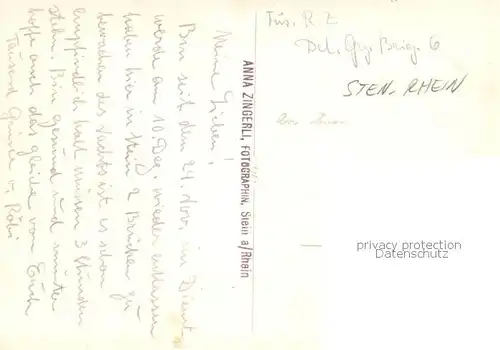 Meine Lieben!
Bin seit dem 24. Nov. im Dienst
werde am 10. Dez. wieder entlassen
haben hier in Stein 2 Brücken zu
bewachen des Nachts ist es schon
empfindlich kalt müssen 3 Stunden
stehn. Bin gesund und munter
hoffe auch das gleiche von Euch
Tausend Grüsse v.
ANNA ZINGERLI, FOTOGRAPHIN, Stein a/Rhein
Füs. R Z
Det. Grz. Brig. 6
STEN. RHEIN
privacy protection
watermark